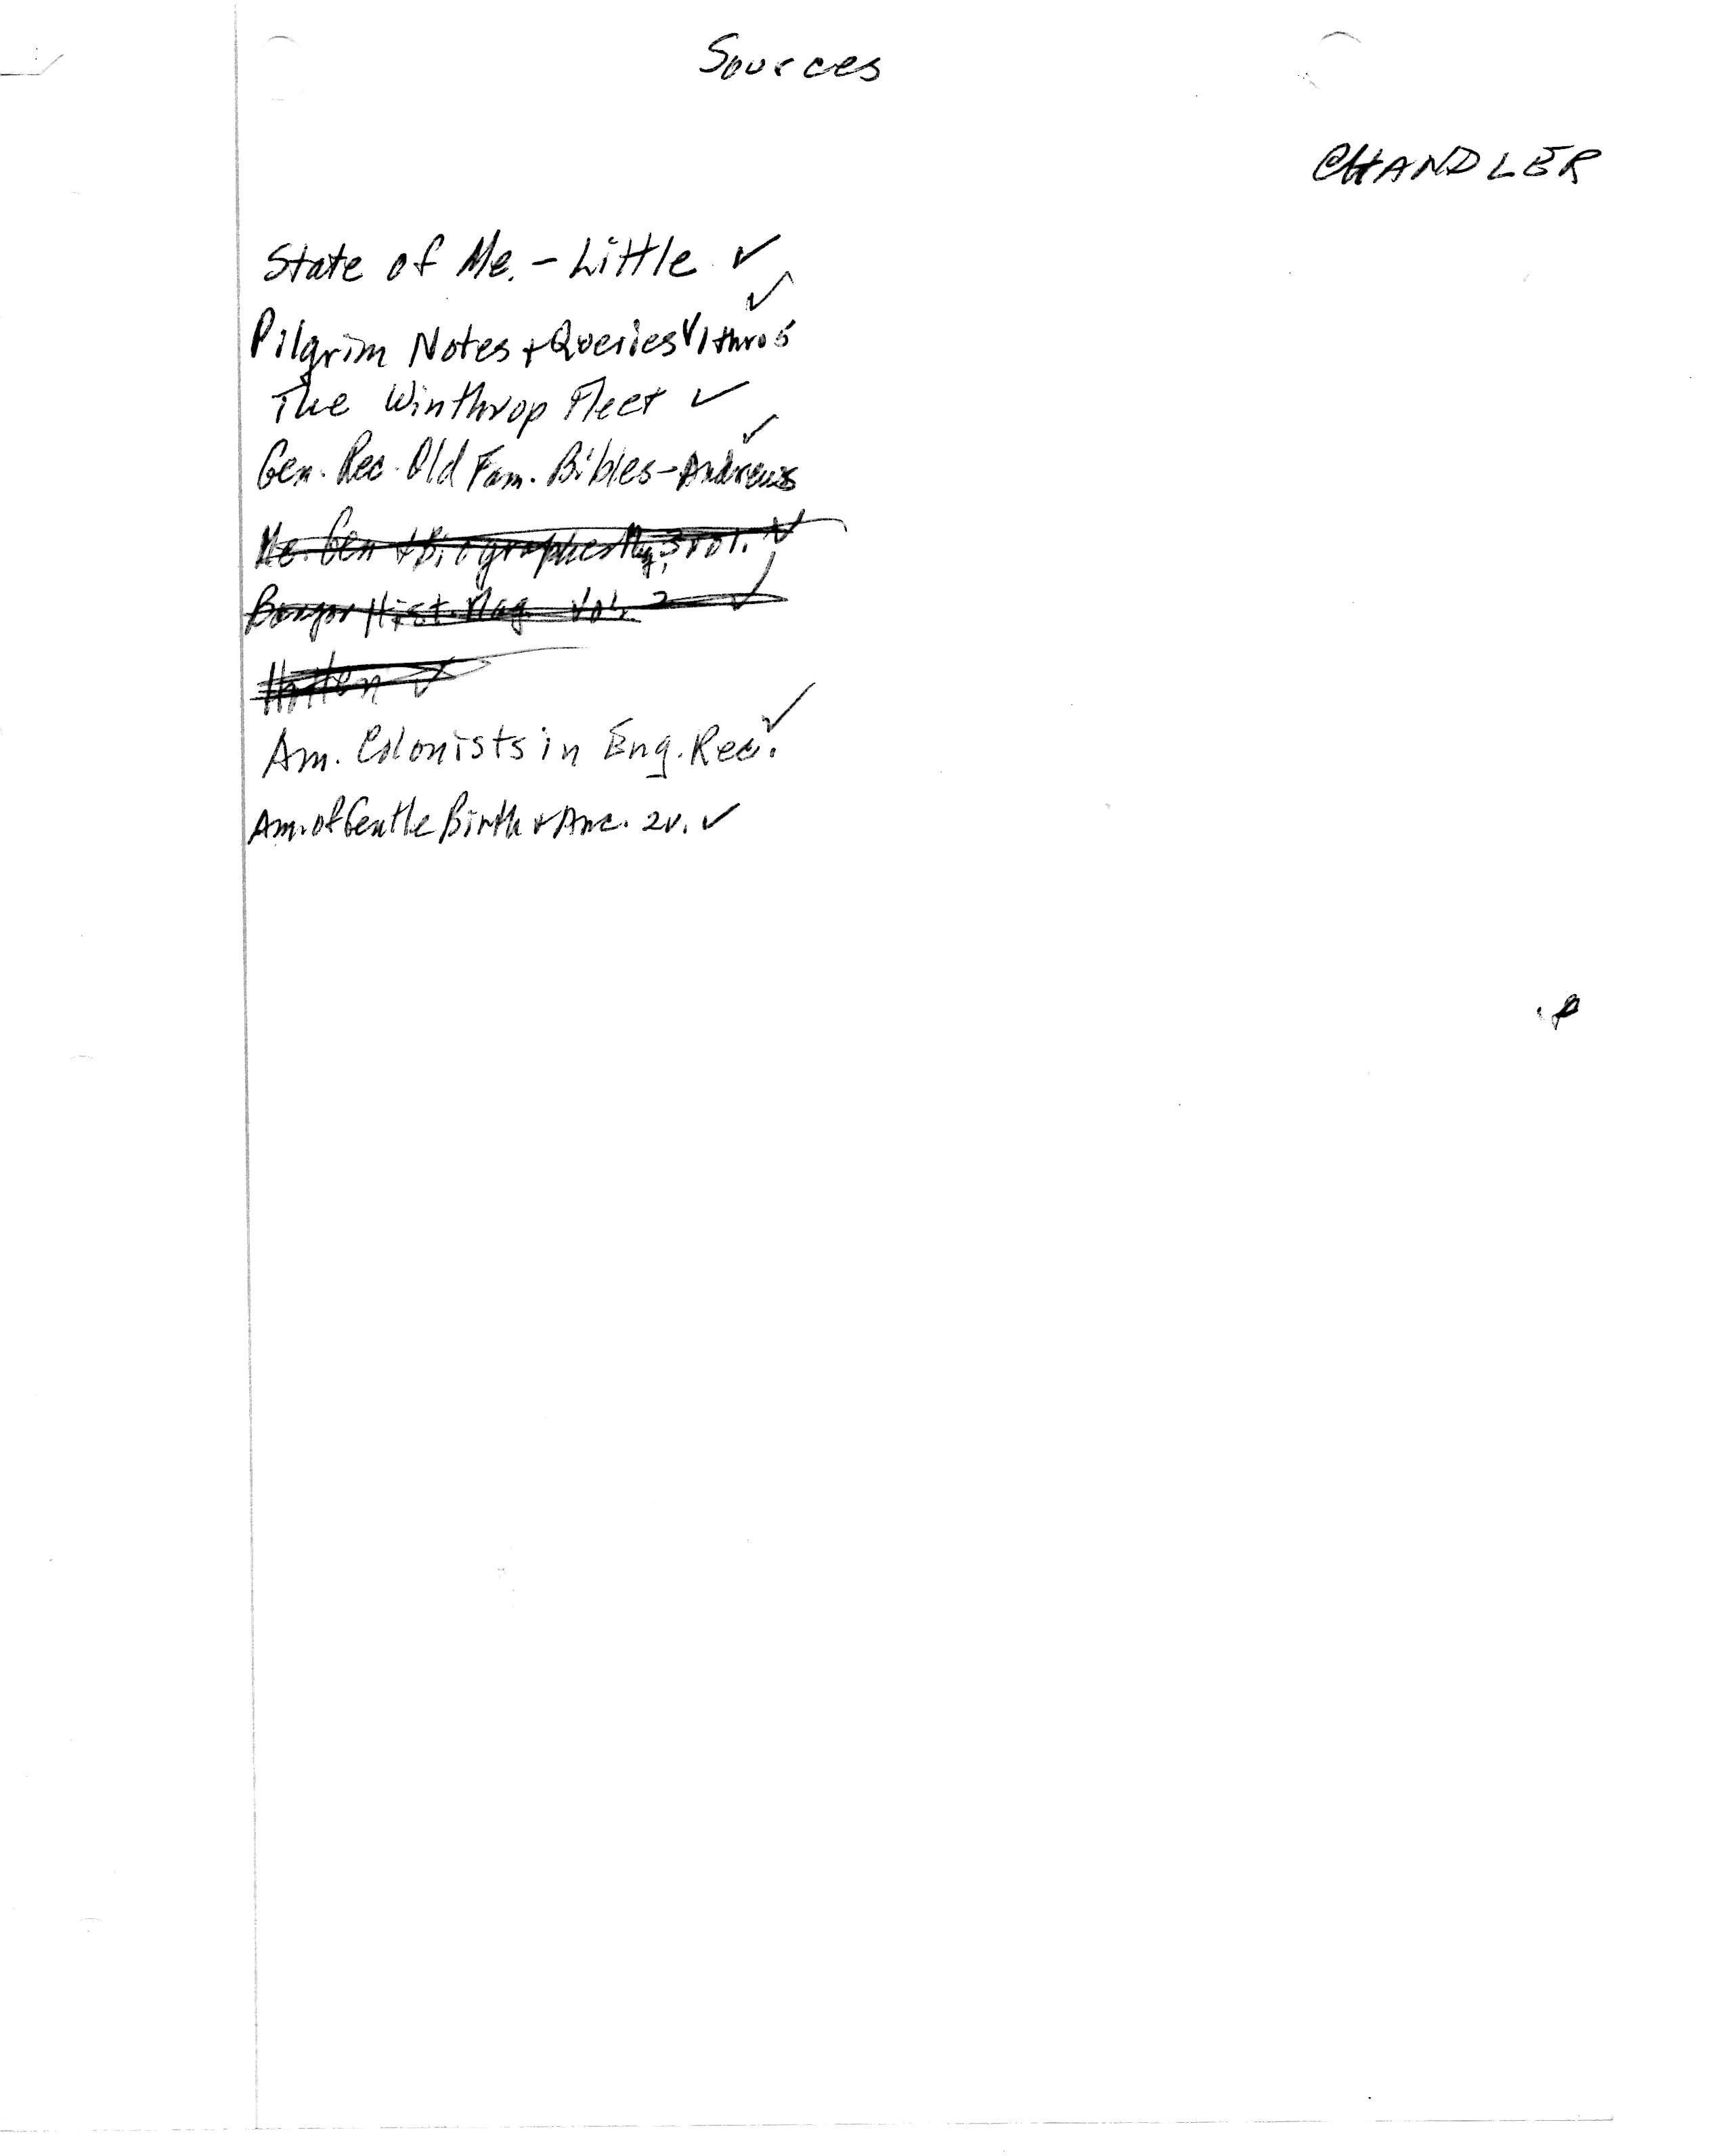 Sources
CHANDLER
State of Me. - Little ✓
Pilgrim Notes + Queries V1 thro 5 ✓
The Winthrop Fleet ✓
Gen. Rec. Old Fam. Bibles - Andrews ✓
Me. Gen + Biographer 3 vol. ✓
Bangor Hist. Mag. Vol. 2 ✓
Hotten ✓
Am. Colonists in Eng. Rec. ✓
Am. of Gentle Birth + Anc. 2v. ✓